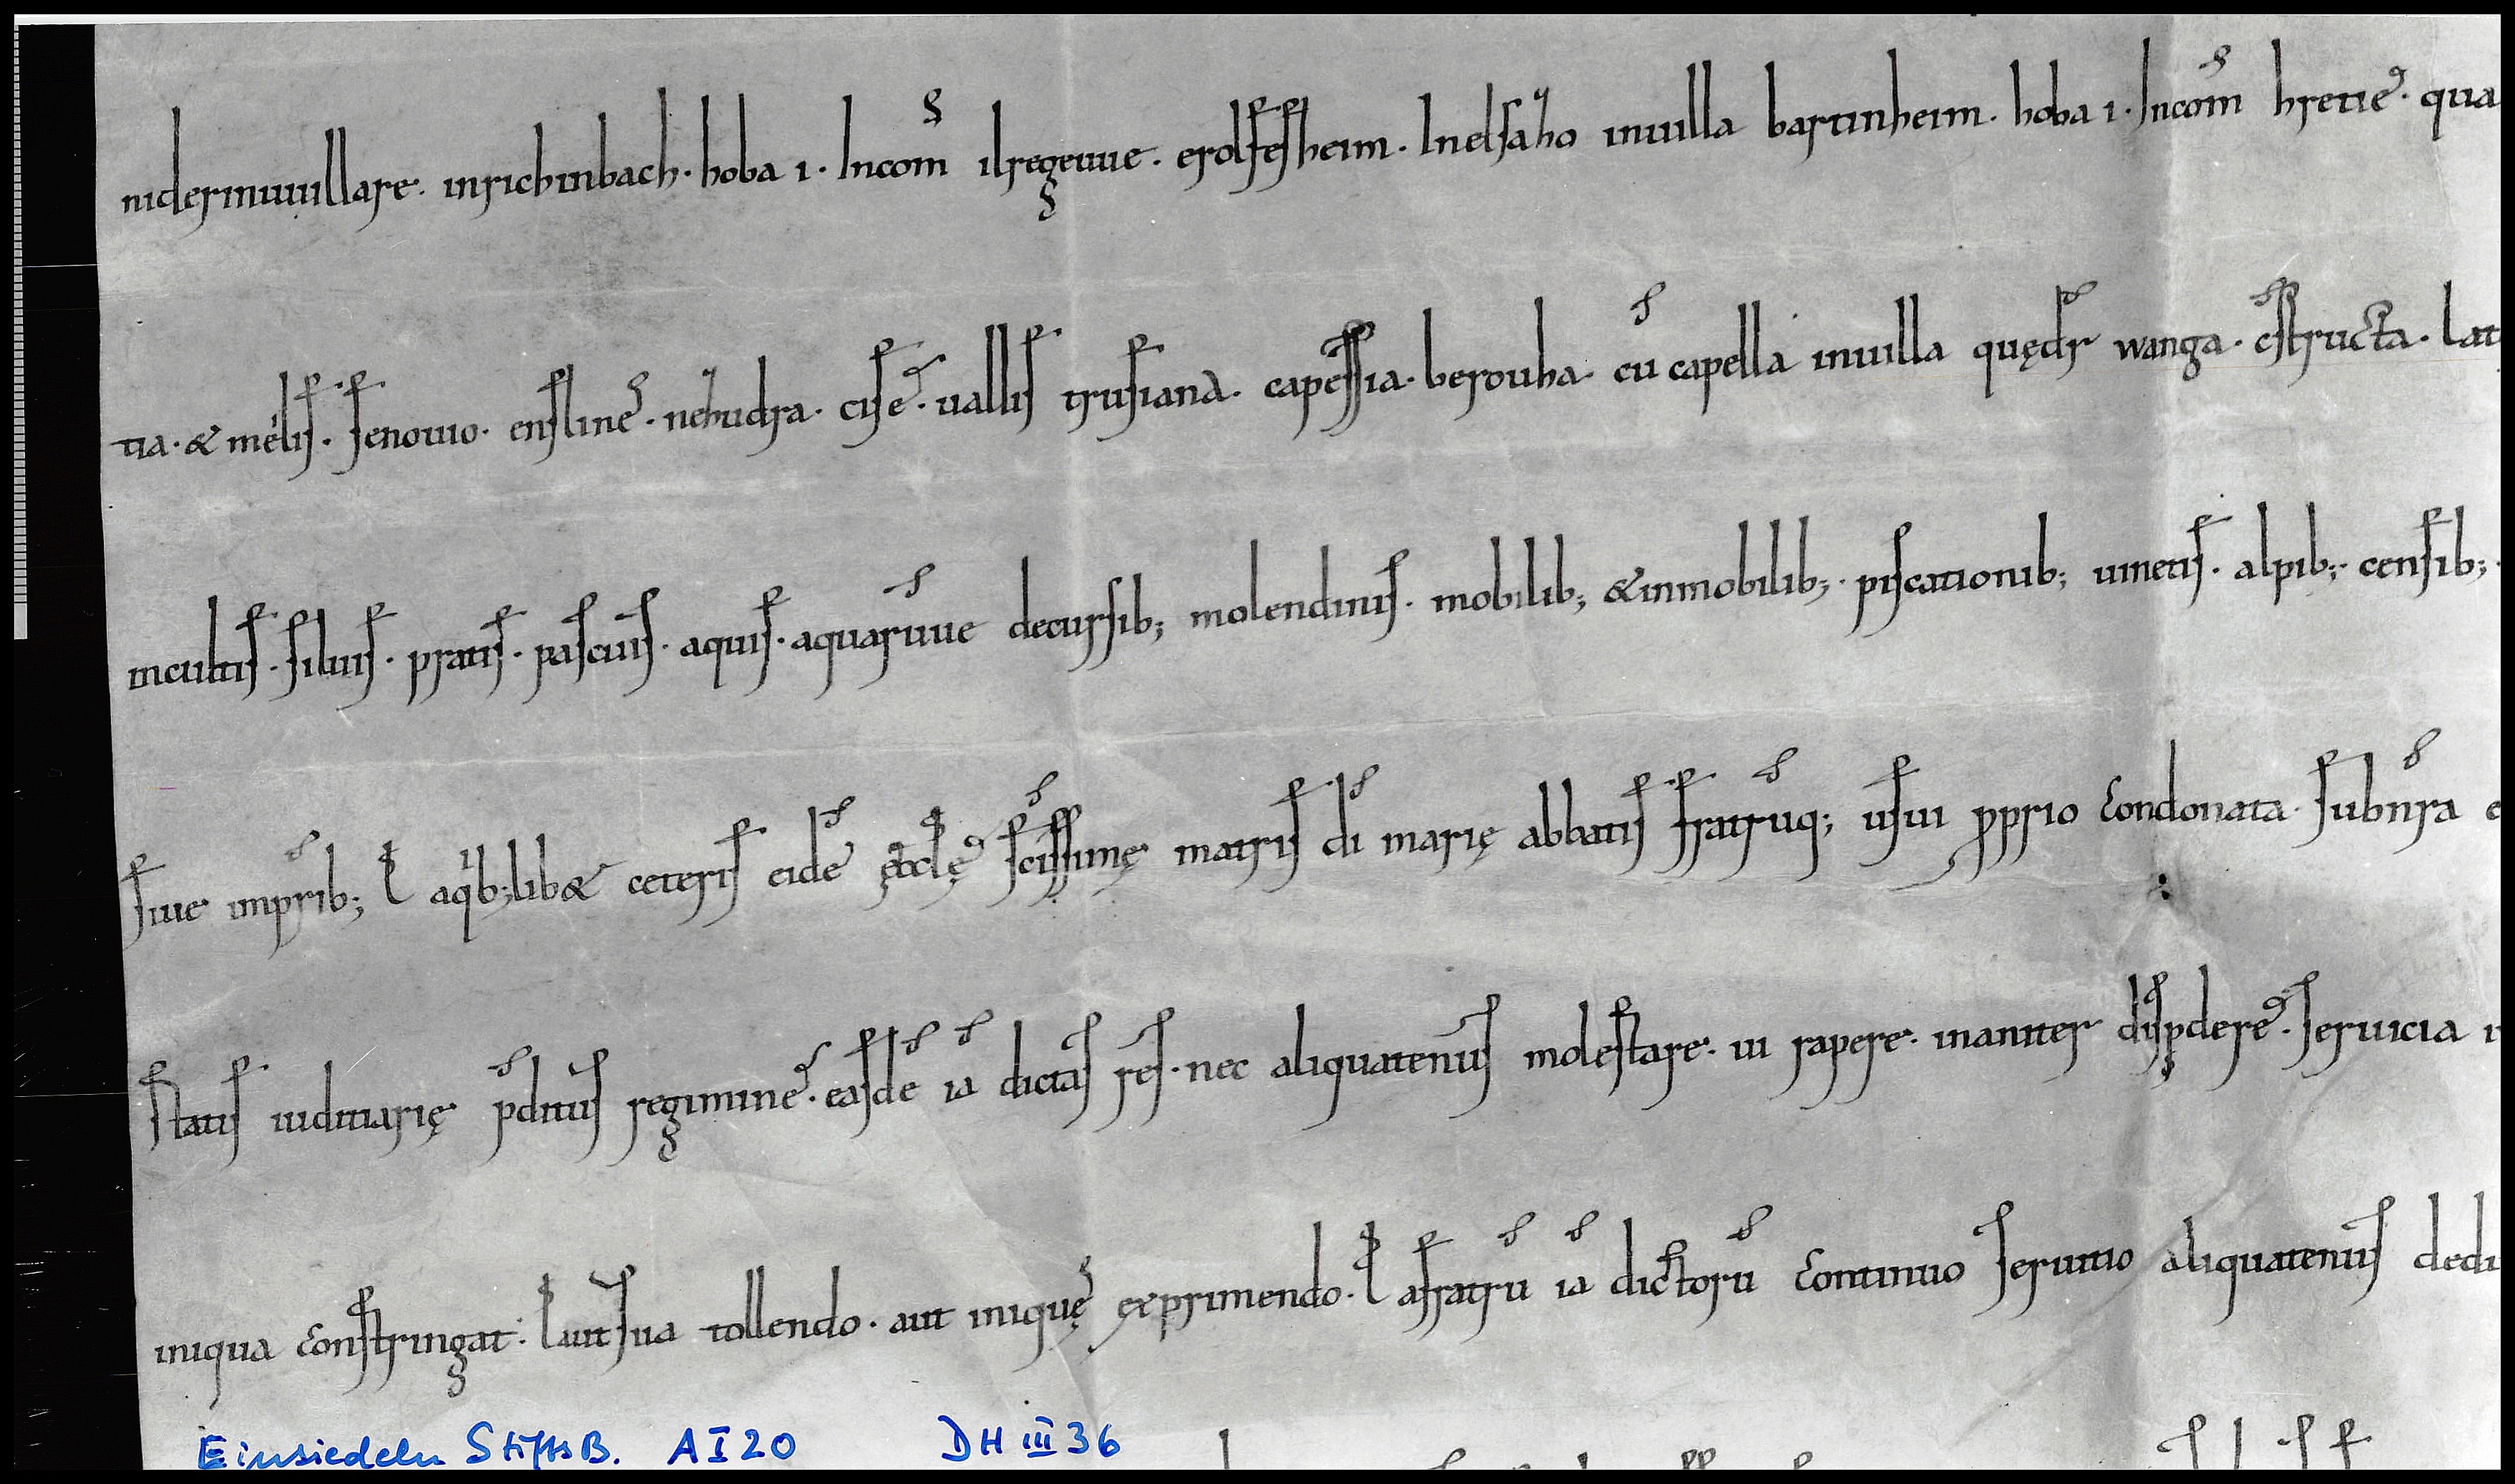 niderinuuillare. inrichinbach. hoba ı. Incom̄ ilregeuue. erolfesheim. Inelsaħo inuilla bartinheim. hoba ı. Incom̄ hretie. qua
tia. & mélis. senouio. ensline. nezudra. cise. uallis trusiana. capessia. berouba. cū capella inuilla quędr̄ wanga. c̄structa. Lat
incultis. siluis. pratis. pascuis. aquis. aquarūue decursib; molendinis. mobilib; &inmobilib; piscationib; uinetis. alpib; censib;
siue inp̄rib; ł aq̇b;lib& ceteris eidē ęccłę sc̄issimę matris dī marię abbatis fratrūq; usui pprio condonata. subnr̄a
statis iuditiarię p̄ditus regimine. easdē iā dictas res. nec aliquatenus molestare. ui rapere. inaniter disp̱dere. seruicia
iniqua constringat. ł aut sua tollendo. aut iniquę exprimendo. ł afratrū iā dictorū continuo seruitio aliquatenus dedu
Einsiedeln StiftsB. A I 20 DH III 36